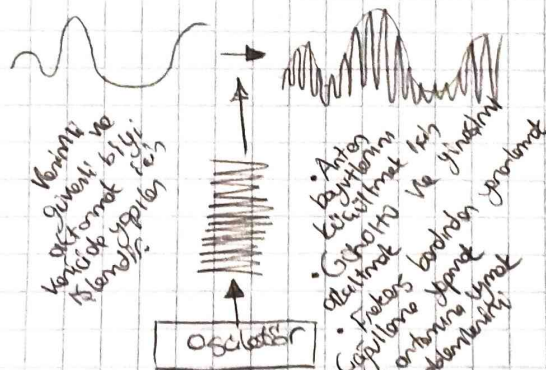 Verimli ve
güvenli bilgi
aktarmak için
vericide
işlendi yapılan
• Anten
boyutlarını
küçültmek için
• Gürültü ve girişimi
azaltmak
• Frekans bandından yararlanmak
Çoğullama yapmak
ortamına uymak
osilatör